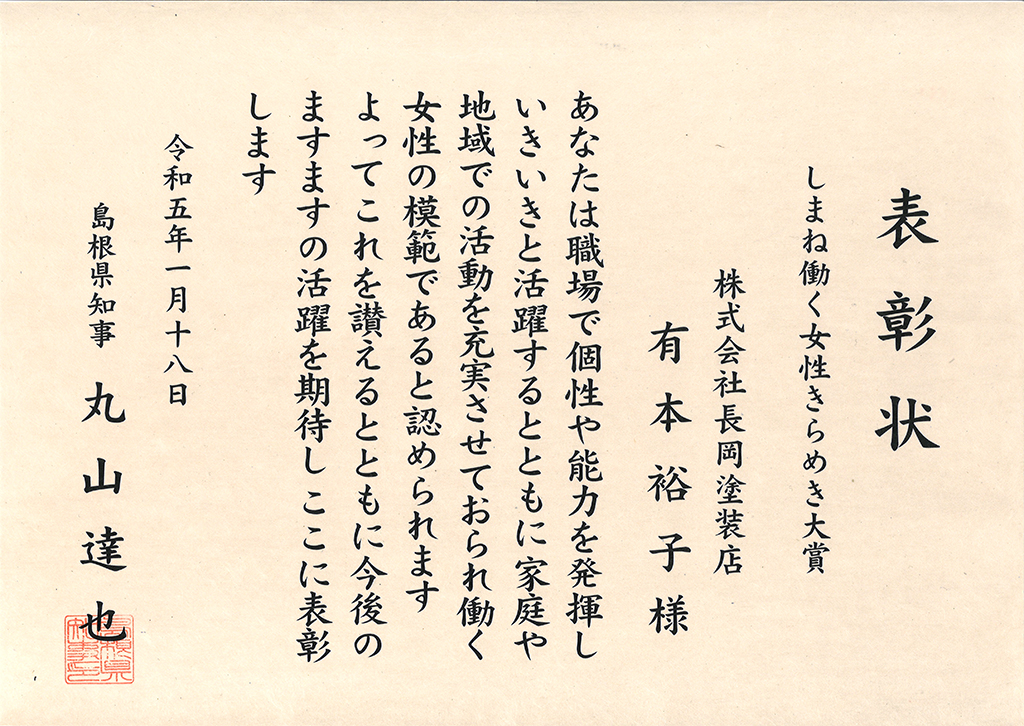 表彰状
しまね働く女性きらめき大賞
株式会社長岡塗装店
有本裕子様
あなたは職場で個性や能力を発揮し
いきいきと活躍するとともに家庭や
地域での活動を充実させておられ働く
女性の模範であると認められます
よってこれを讃えるとともに今後の
ますますの活躍を期待しここに表彰
します
令和五年一月十八日
島根県知事 丸山達也
島根県
知事之印